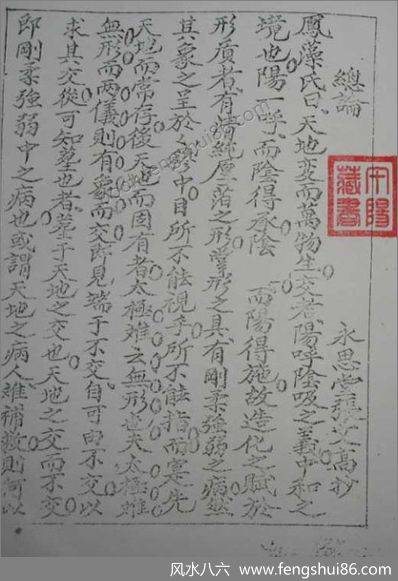 總論 永思堂張高抄
鳳藻氏曰天地變而萬物生交者陽呼陰吸之義中和之
境也陽一呼而陰得承陰 而陽得施故造化之賦於
形質者有情純層落之形掌形之具有剛柔強弱之病然
其象之呈於穆中目所不能視手所不能指而寔先
天地而常存後天地而固有者太極難云無形也夫太極雖
無形而兩儀則有象而交即見端于不交自可由不交以
求其交從可知墓也者墓于天地之交也天地之交而不交
即剛柔強弱中之病也或謂天地之病人難補救則何以
陽藏書
风水八六 - fengshui86.com